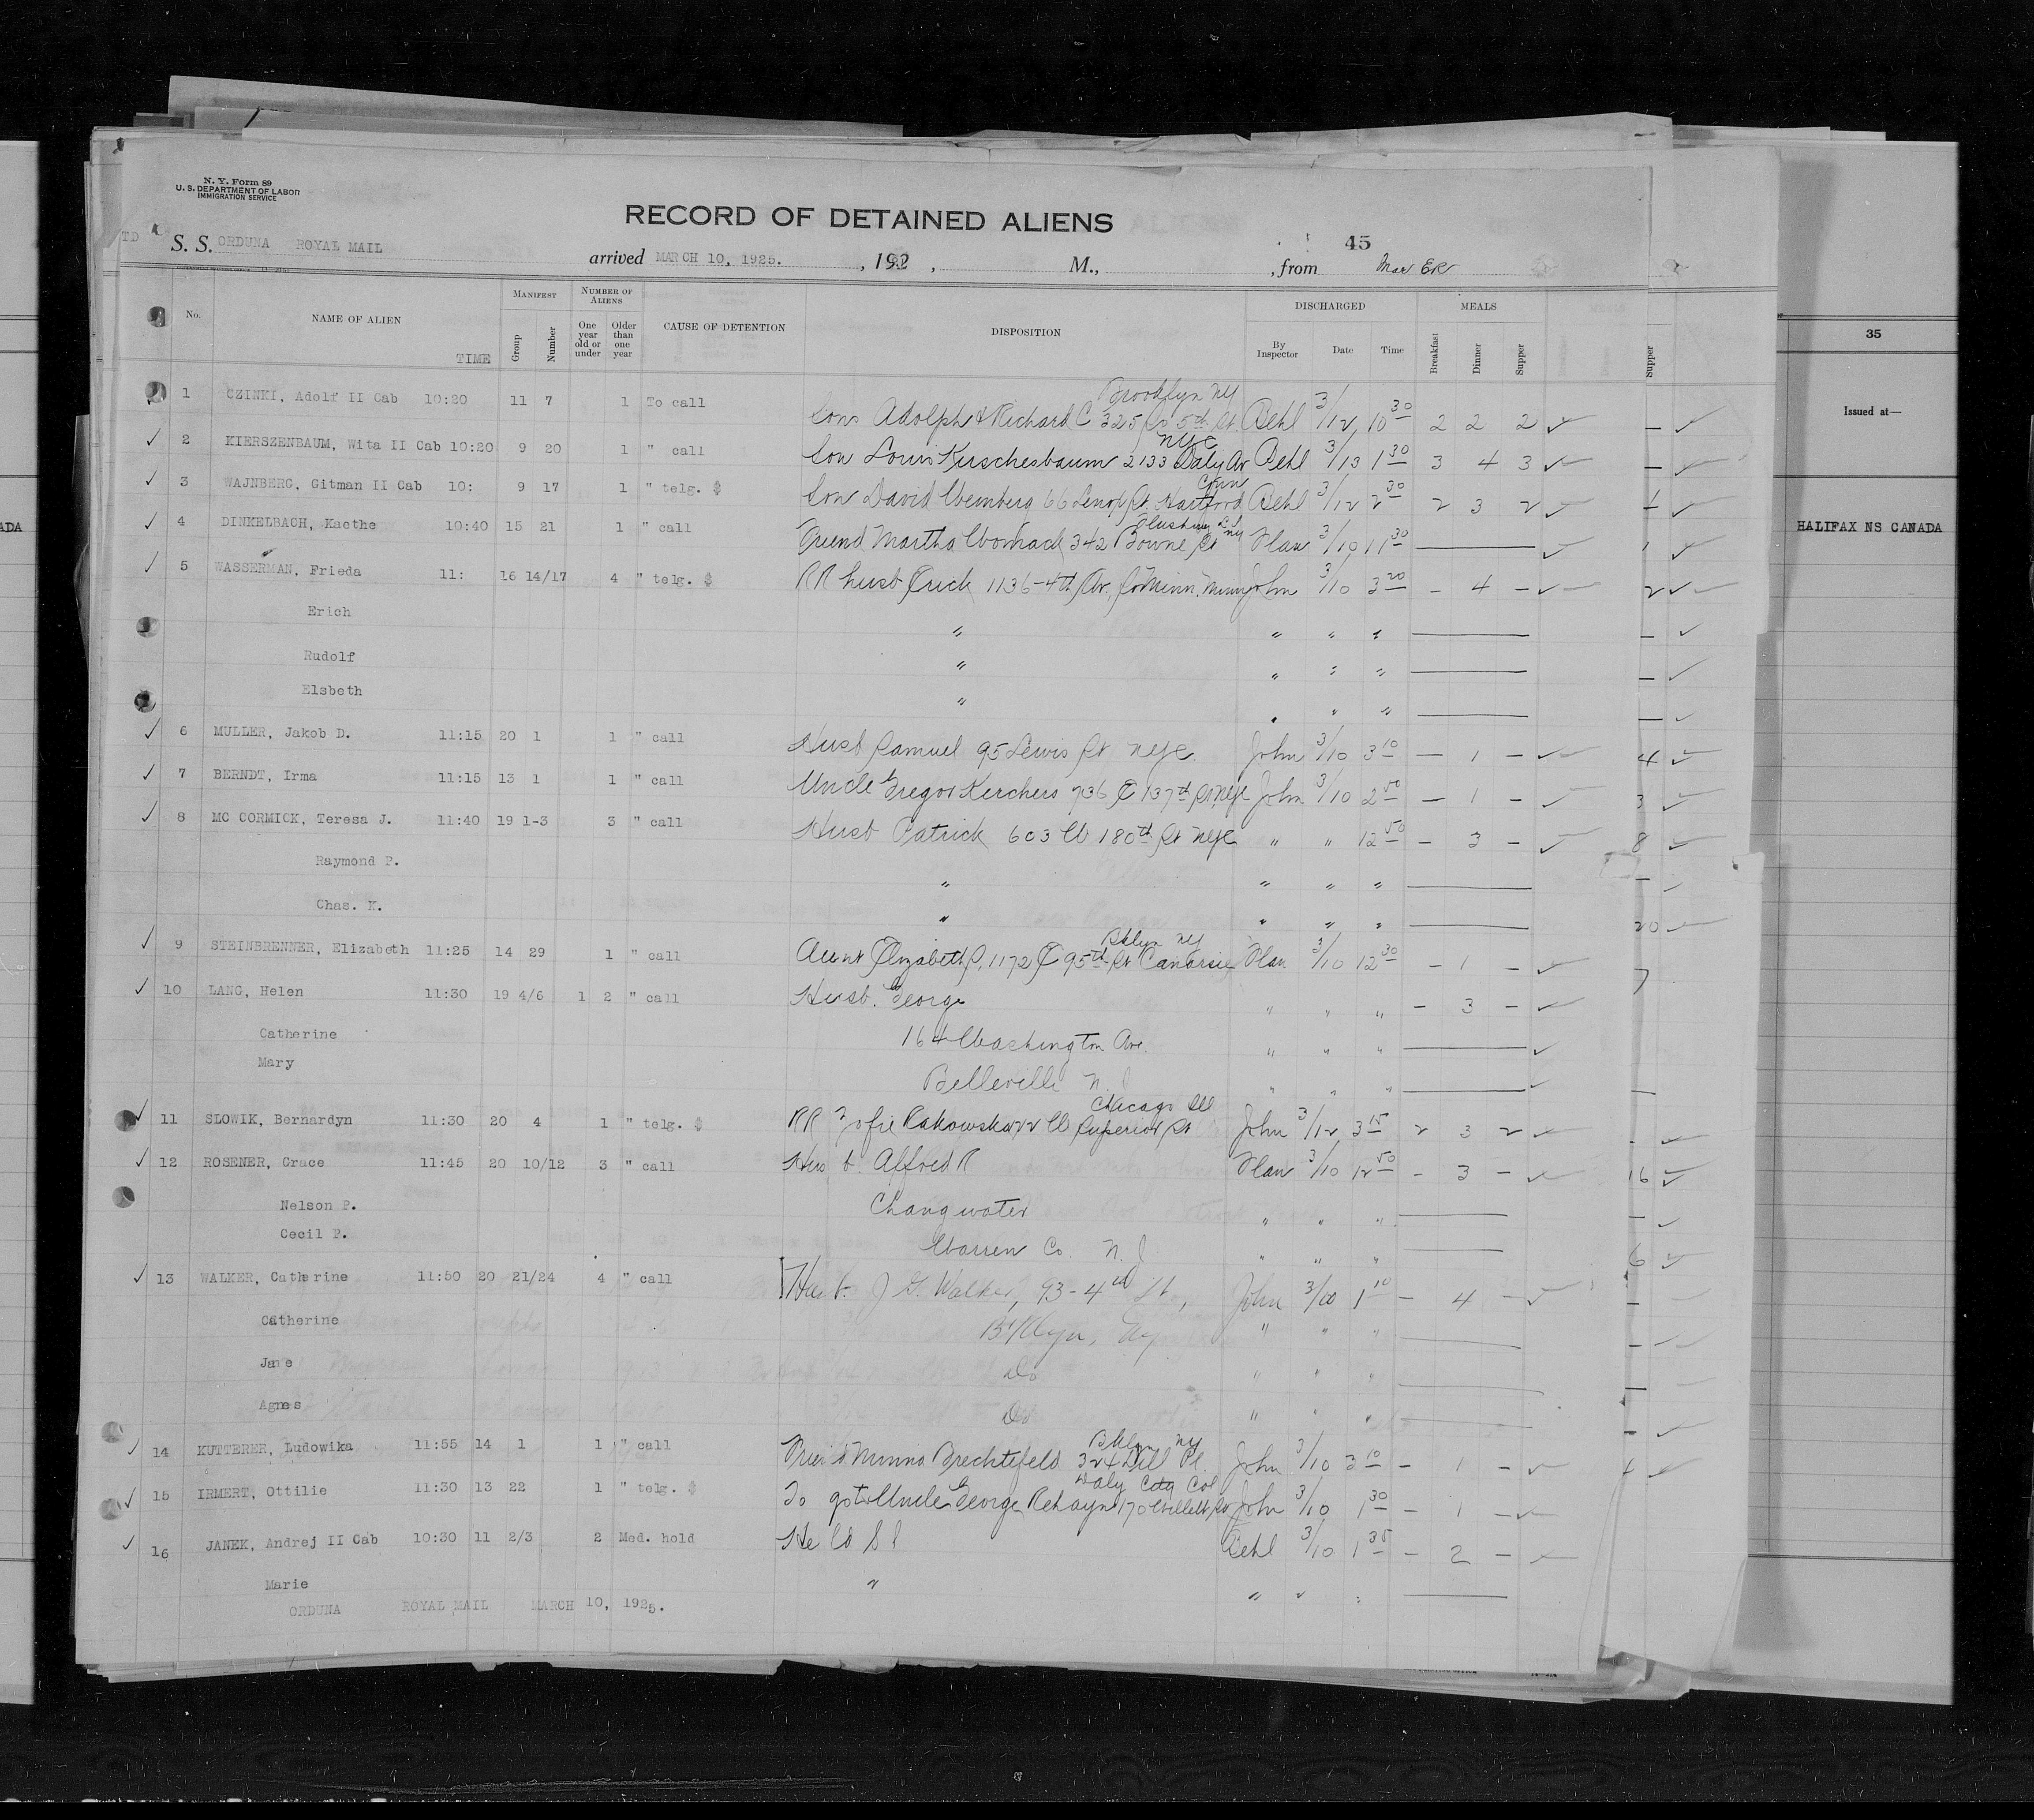 N. Y. Form 89
U. S. DEPARTMENT OF LABOR
IMMIGRATION SERVICE
RECORD OF DETAINED ALIENS
45
TD S. S. ORDUNA ROYAL MAIL arrived MARCH 10, 1925. , 192 , M., , from
No. NAME OF ALIEN TIME MANIFEST Group Number NUMBER OF ALIENS One year old or under Older than one year CAUSE OF DETENTION DISPOSITION DISCHARGED By Inspector Date Time MEALS Breakfast Dinner Supper
Supper
35
Issued at—
HALIFAX NS CANADA
ADA
Brooklyn NY
1 CZINKI, Adolf II Cab 10:20 11 7 1 To call Sons Adolph & Richard C 325 So 5th St. 3/12 10 30 2 2 2
NYC
2 KIERSZENBAUM, Wita II Cab 10:20 9 20 1 " call Son Louis Kirschesbaum 2133 Daly Av 3/13 1 30 3 4 3
Conn
3 WAJNBERG, Gitman II Cab 10: 9 17 1 " telg. $ Son David Wemberg 66 Lenox St. Hartford 3/12 2 30 2 3 2
Flushing LI NY
4 DINKELBACH, Kaethe 10:40 15 21 1 " call Friend Martha 342 Bowne St 3/10 11 30
5 WASSERMAN, Frieda 11: 16 14/17 4 " telg. $ RR husb Erick 1136-4th Av. So Minn. Minn John 3/10 3 20 - 4 - 2
Erich " " " "
Rudolf " " " "
Elsbeth " " " "
6 MULLER, Jakob D. 11:15 20 1 1 " call Husb Samuel 95 Lewis St NYC John 3/10 3 10 - 1 - 4
7 BERNDT, Irma 11:15 13 1 1 " call Uncle Gregor Kerchers 736 E 137th St NYC John 3/10 2 50 - 1 - 3
8 MC CORMICK, Teresa J. 11:40 19 1-3 3 " call Husb Patrick 603 W 180th St NYC " " 12 50 - 3 - 8
Raymond P. " " " "
Chas. K. " " " " 20
Bklyn NY
9 STEINBRENNER, Elizabeth 11:25 14 29 1 " call Aunt Elizabeth S, 1172 E 95th St Canarsie 3/10 12 30 - 1 - 7
10 LANG, Helen 11:30 19 4/6 1 2 " call Husb. George " " " - 3 -
Catherine 164 Washington Ave. " " "
Mary Belleville N. J " " "
Chicago Ill
11 SLOWIK, Bernardyn 11:30 20 4 1 " telg. $ RR Zofie Rakowska W Superior St John 3/12 3 15 2 3 2
12 ROSENER, Grace 11:45 20 10/12 3 " call Husb. Alfred R 3/10 12 50 - 3 - 16
Nelson P. Changwater " " "
Cecil P. Warren Co. N. J " " " 6
13 WALKER, Catherine 11:50 20 21/24 4 " call Husb. J G. Walker, 93-4th St, John 3/10 1 10 - 4 -
Catherine B'klyn, Ny " " "
Jane Do " " "
Agnes Do " " "
Bklyn NY
14 KUTTERER, Ludowika 11:55 14 1 1 " call Friend Minna Brechtefeld 324 Dill Pl. John 3/10 3 10 - 1 -
Daly City Cal
15 IRMERT, Ottilie 11:30 13 22 1 " telg. $ To Uncle George 170 John 3/10 1 30 - 1 -
16 JANEK, Andrej II Cab 10:30 11 2/3 2 Med. hold 3/10 1 35 - 2 -
Marie " " " "
ORDUNA ROYAL MAIL MARCH 10, 1925.